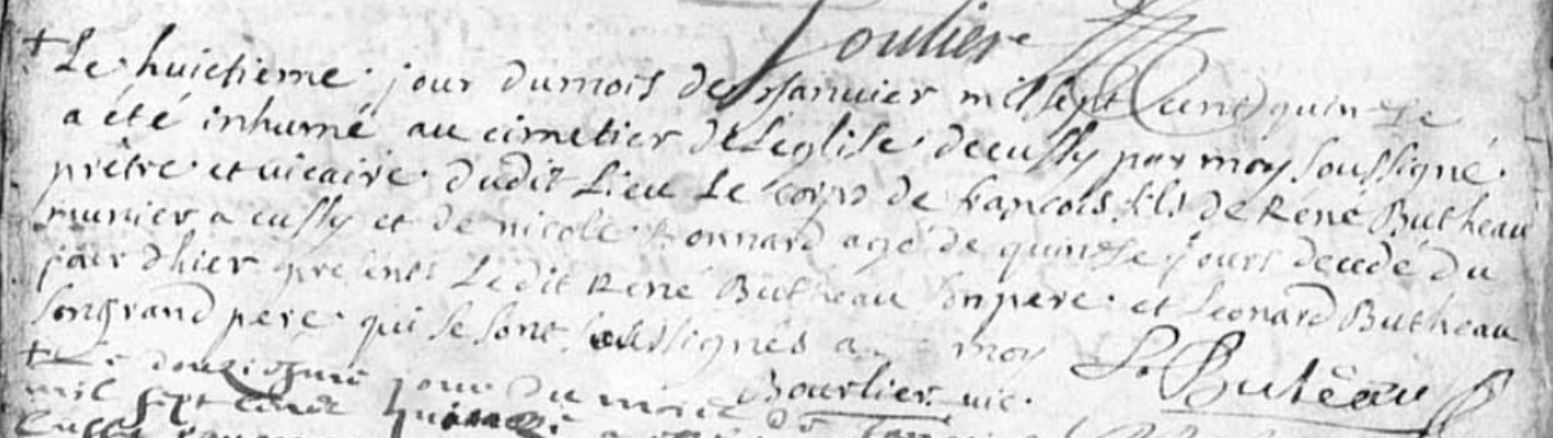 Soulier
+ Le huictieme jour du mois de Januier mil sept cent quinze
a été inhumé au cimetier de Leglise de cussy par moy soussigné
prêtre et vicaire dudit Lieu Le corps de françois fils de Réné Butheau
munier a cussy et de nicole Bonnard agé de quinze jours decedé du
jour dhier presents Ledit Réné Butheau son pere et Leonard Butheau
son grand pere qui se sont soussignés a moy
Bourlier vic. L. Butêau
+ Le jour du mois de
mil sept cent